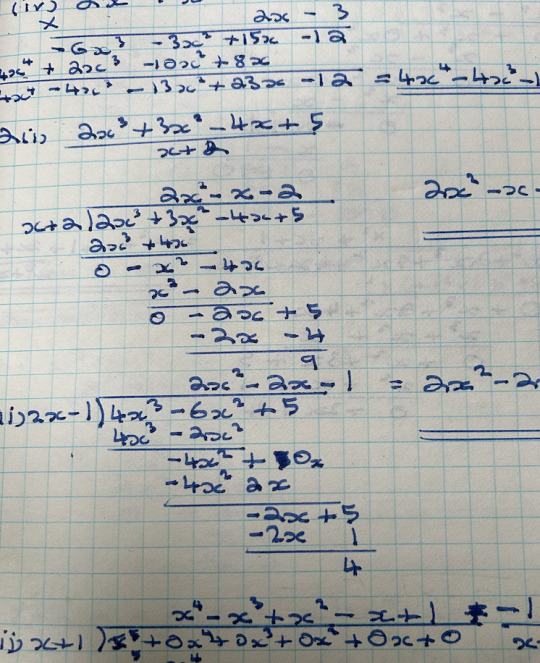 (iv) 2x
× 2x - 3
-6x³ - 3x² + 15x - 12
4x⁴ + 2x³ - 10x² + 8x
4x⁴ - 4x³ - 13x² + 23x - 12 = 4x⁴ - 4x³ - 1
2(i) 2x³ + 3x² - 4x + 5
x + 2
2x² - x - 2
x+2 ) 2x³ + 3x² - 4x + 5 2x² - x -
2x³ + 4x²
0 - x² - 4x
x² - 2x
0 - 2x + 5
- 2x - 4
9
2x² - 2x - 1 = 2x² - 2
ii) 2x-1 ) 4x³ - 6x² + 5
4x³ - 2x²
-4x² + 0x
-4x² 2x
-2x + 5
-2x 1
4
x⁴ - x³ + x² - x + 1 -1
ii) x+1 ) x⁵ + 0x⁴ + 0x³ + 0x² + 0x + 0 x